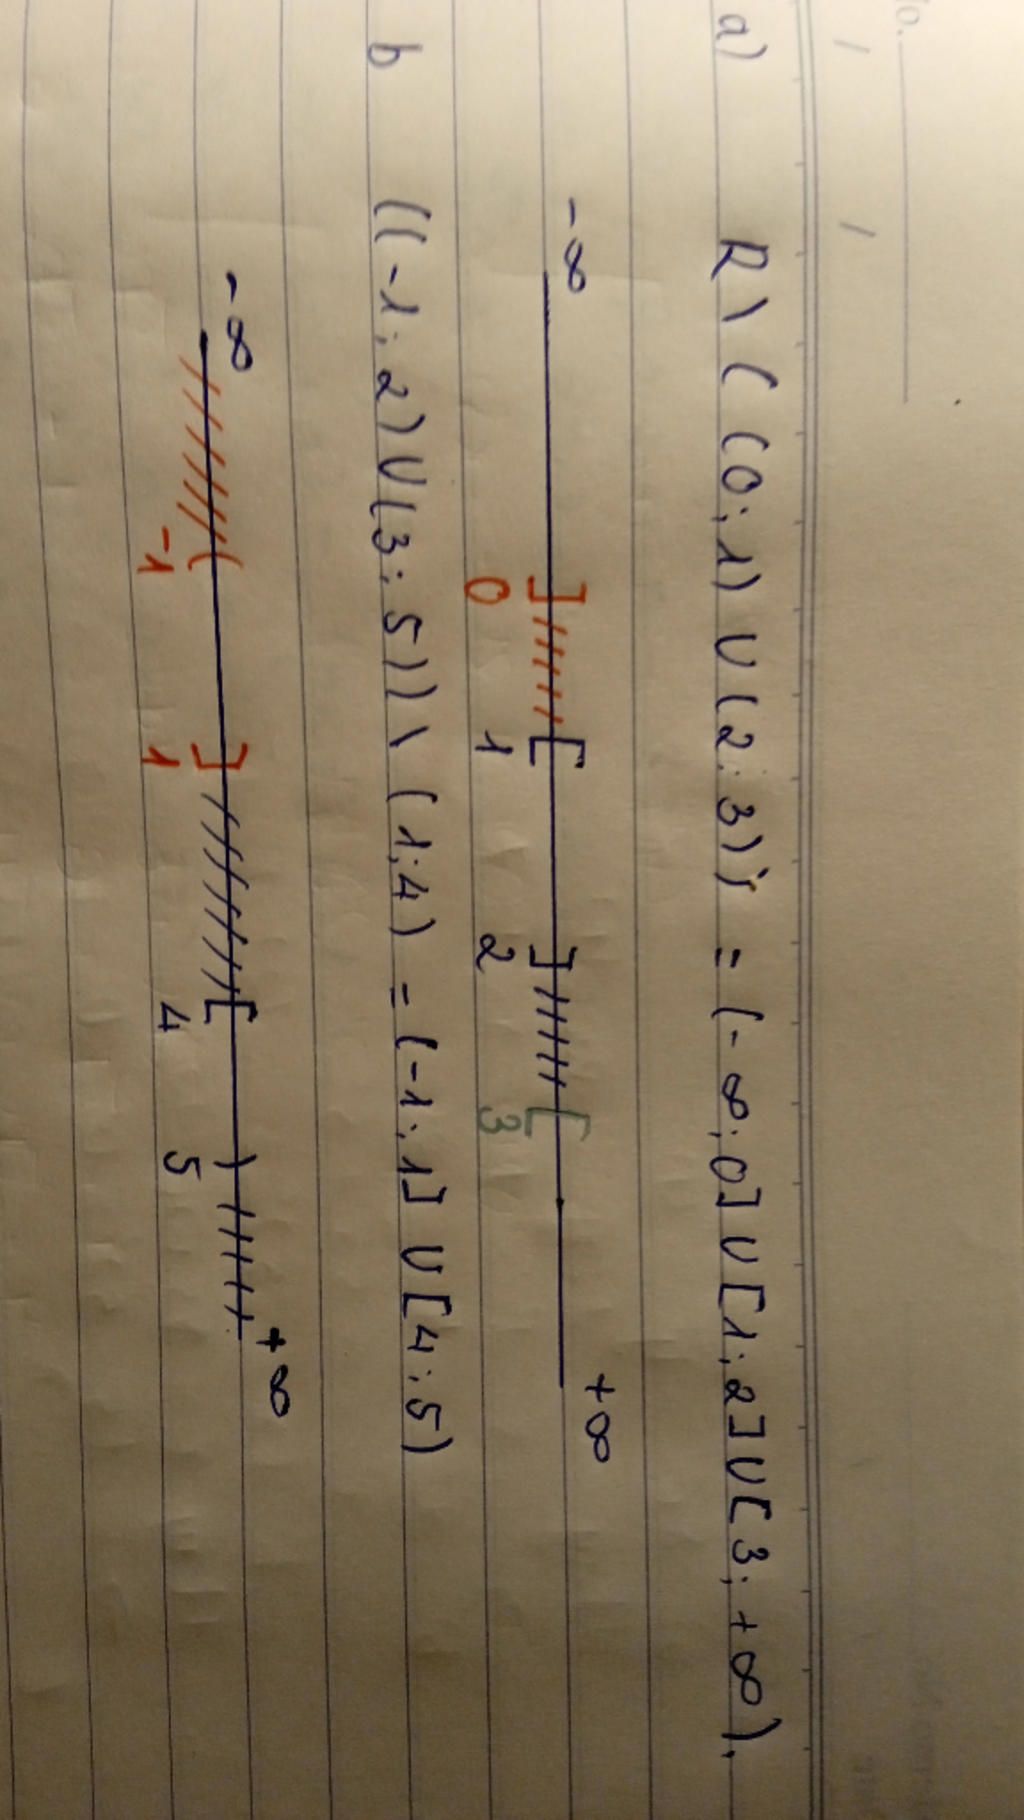 No.
a) R \ ( (0; 1) U (2; 3)) = (-∞; 0] U [1; 2] U [3; +∞).
-∞ ] [ ] [ +∞
0 1 2 3
b ((-1; 2) U (3; 5)) \ (1; 4) = (-1; 1] U [4; 5)
-∞ ( ] [ ) +∞
-1 1 4 5